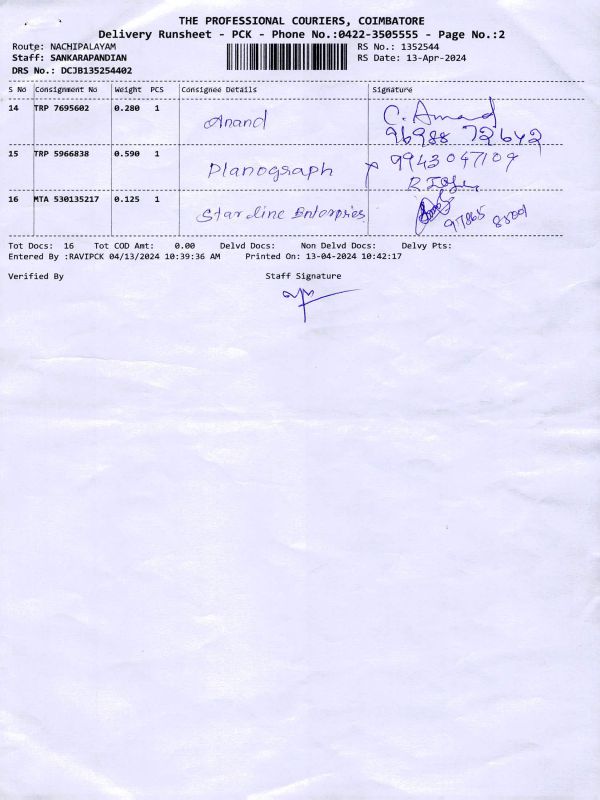 THE PROFESSIONAL COURIERS, COIMBATORE
Delivery Runsheet - PCK - Phone No.:0422-3505555 - Page No.:2
Route: NACHIPALAYAM RS No.: 1352544
Staff: SANKARAPANDIAN RS Date: 13-Apr-2024
DRS No.: DCJB135254402
S No Consignment No Weight PCS Consignee Details Signature
14 TRP 7695602 0.280 1 Anand C. Anand
96988 72642
15 TRP 5966838 0.590 1 Planograph 9943047109
16 MTA 530135217 0.125 1 Starline Enterpries
97865
Tot Docs: 16 Tot COD Amt: 0.00 Delvd Docs: Non Delvd Docs: Delvy Pts:
Entered By :RAVIPCK 04/13/2024 10:39:36 AM Printed On: 13-04-2024 10:42:17
Verified By Staff Signature